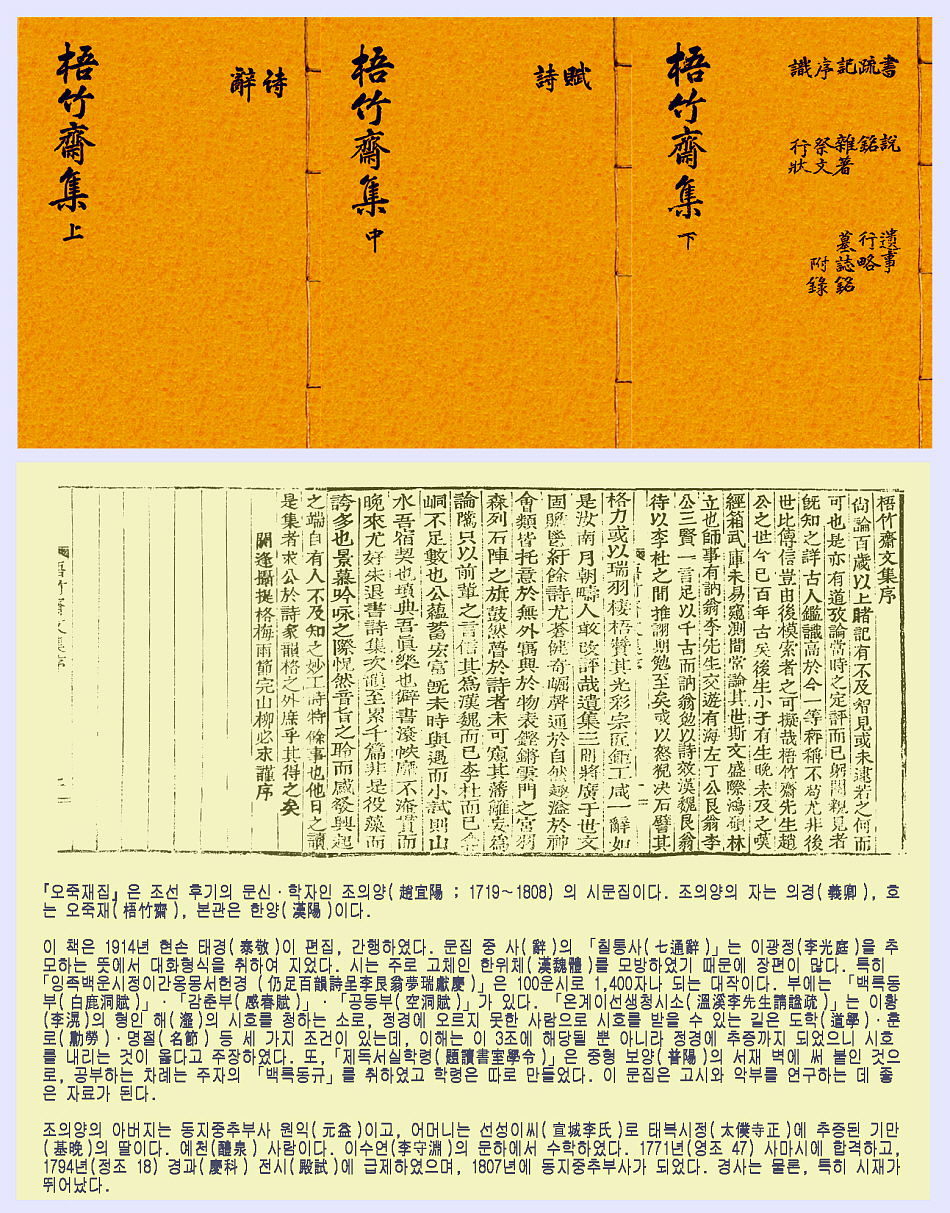 梧竹齋集 上
詩
辭
梧竹齋集 中
賦
詩
梧竹齋集 下
書 疏 記 序 識
說 銘 雜著 祭文 行狀
遺事 行略 墓誌銘 附錄
梧竹齋文集序
尙論百歲以上賭記有不及智見或未逮若之何而
可也是亦有道攷論當時之定評而已躬聞親見者
旣知之詳古人鑑識高於今一等稱稱不苟尤非後
世比傳信豈由後模索者之可擬哉梧竹齋先生趙
公之世今已百年古矣後生小子有生晩未及之嘆
經箱武庫未易窺測間常論其世斯文盛際鴻碩林
立也師事有訥翁李先生交遊有海左丁公艮翁李
公三賢一言足以千古而訥翁勉以詩效漢魏艮翁
待以李杜之間推詡期勉至矣或以怒猊决石譬其
格力或以瑞羽棲梧贊其光彩宗匠鉅工咸一辭如
是汝南月朝疇人敢改評哉遺集三冊將廣于世文
固贍鬯紆餘詩尤蒼健奇崛聲通於自然趣溢於神
會類皆托意於無外寓興於物表鏗鏘雲門之宮羽
森列石陣之旗鼓然瞽於詩者未可窺其藩離妄爲
論隲只以前輩之言信其爲漢魏而已李杜而已
峒不足數也公蘊蓄宏富旣未時與遇而小試則山
水吾宿契也墳典吾眞樂也僻書滾帙靡不淹貫而
晩來尤好朱退書詩集次韻至累千篇非是役藻而
誇多也景慕吟咏之際怳然音旨之聆而感發興起
之端自有人不及知之妙工詩特餘事也他日之讀
是集者求公於詩家韻格之外庶乎其得之矣
閼逢攝提格梅雨節完山柳必永謹序
『오죽재집』은 조선 후기의 문신·학자인 조의양(趙宜陽 ; 1719~1808) 의 시문집이다. 조의양의 자는 의경(義卿), 호
는 오죽재(梧竹齋), 본관은 한양(漢陽)이다.
이 책은 1914년 현손 태경(泰敬)이 편집, 간행하였다. 문집 중 사(辭)의 「칠통사(七通辭)」는 이광정(李光庭)을 추
모하는 뜻에서 대화형식을 취하여 지었다. 시는 주로 고체인 한위체(漢魏體)를 모방하였기 때문에 장편이 많다. 특히
「잉족백운시정이간옹몽서헌경 (仍足百韻詩呈李艮翁夢瑞獻慶)」은 100운시로 1,400자나 되는 대작이다. 부에는 「백록동
부(白鹿洞賦)」·「감춘부(感春賦)」·「공동부(空洞賦)」가 있다. 「온계이선생청시소(溫溪李先生請諡疏)」는 이황
(李滉)의 형인 해(瀣)의 시호를 청하는 소로, 정경에 오르지 못한 사람으로 시호를 받을 수 있는 길은 도학(道學)·훈
로(勳勞)·명절(名節) 등 세 가지 조건이 있는데, 이해는 이 3조에 해당될 뿐 아니라 정경에 추증까지 되었으니 시호
를 내리는 것이 옳다고 주장하였다. 또,「제독서실학령(題讀書室學令)」은 중형 보양(普陽)의 서재 벽에 써 붙인 것으
로, 공부하는 차례는 주자의 「백록동규」를 취하였고 학령은 따로 만들었다. 이 문집은 고시와 악부를 연구하는 데 좋
은 자료가 된다.
조의양의 아버지는 동지중추부사 원익(元益)이고, 어머니는 선성이씨(宣城李氏)로 태복시정(太僕寺正)에 추증된 기만
(基晩)의 딸이다. 예천(醴泉) 사람이다. 이수연(李守淵)의 문하에서 수학하였다. 1771년(영조 47) 사마시에 합격하고,
1794년(정조 18) 경과(慶科) 전시(殿試)에 급제하였으며, 1807년에 동지중추부사가 되었다. 경사는 물론, 특히 시재가
뛰어났다.